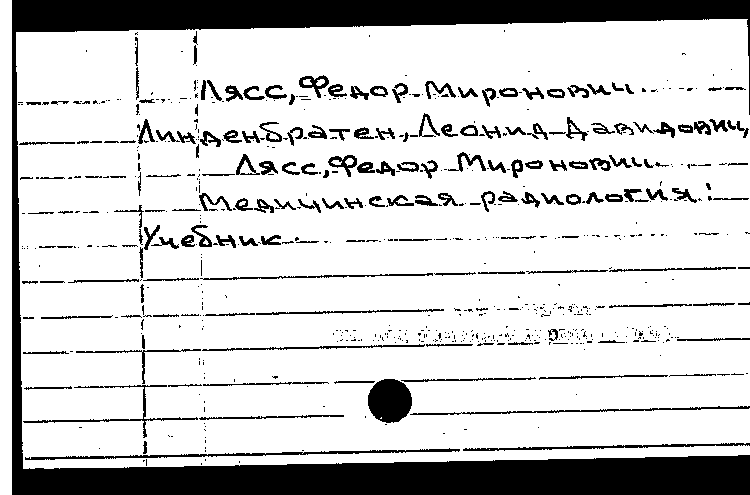 Лясс, Федор Миронович.
Линденбратен, Леонид Давидович,
Лясс, Федор Миронович.
Медицинская радиология:
Учебник.